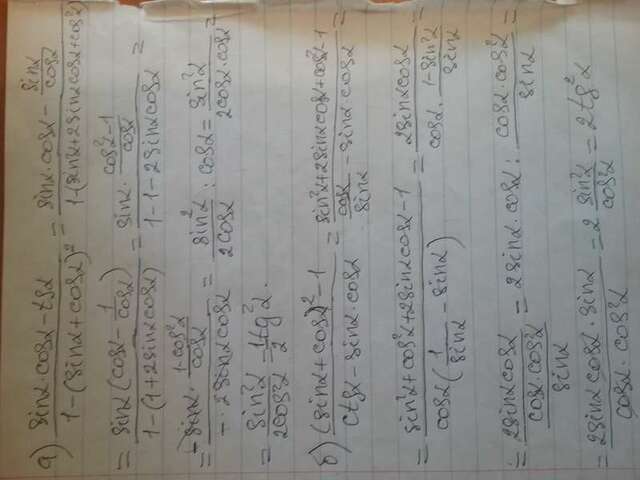 а) (sinα·cosα-tgα)/(1-(sinα+cosα)²) = (sinα·cosα - sinα/cosα)/(1-(sin²α+2sinαcosα+cos²α)) =
= sinα(cosα - 1/cosα)/(1-(1+2sinαcosα)) = (sinα · (cos²α-1)/cosα)/(1-1-2sinαcosα) =
= (-sinα · (1-cos²α)/cosα)/(-2sinαcosα) = sin²α/2cosα : cosα = sin²α/(2cosα·cosα) =
= sin²α/2cos²α = 1/2 tg²α.
б) ((sinα+cosα)²-1)/(ctgα-sinα·cosα) = (sin²α+2sinαcosα+cos²α-1)/(cosα/sinα - sinα·cosα) =
= (sin²α+cos²α+2sinαcosα-1)/(cosα(1/sinα - sinα)) = 2sinαcosα/(cosα · (1-sin²α)/sinα) =
= 2sinαcosα/(cosα·cos²α/sinα) = 2sinα·cosα : (cosα·cos²α)/sinα =
= (2sinαcosα·sinα)/(cosα·cos²α) = 2 sin²α/cos²α = 2tg²α